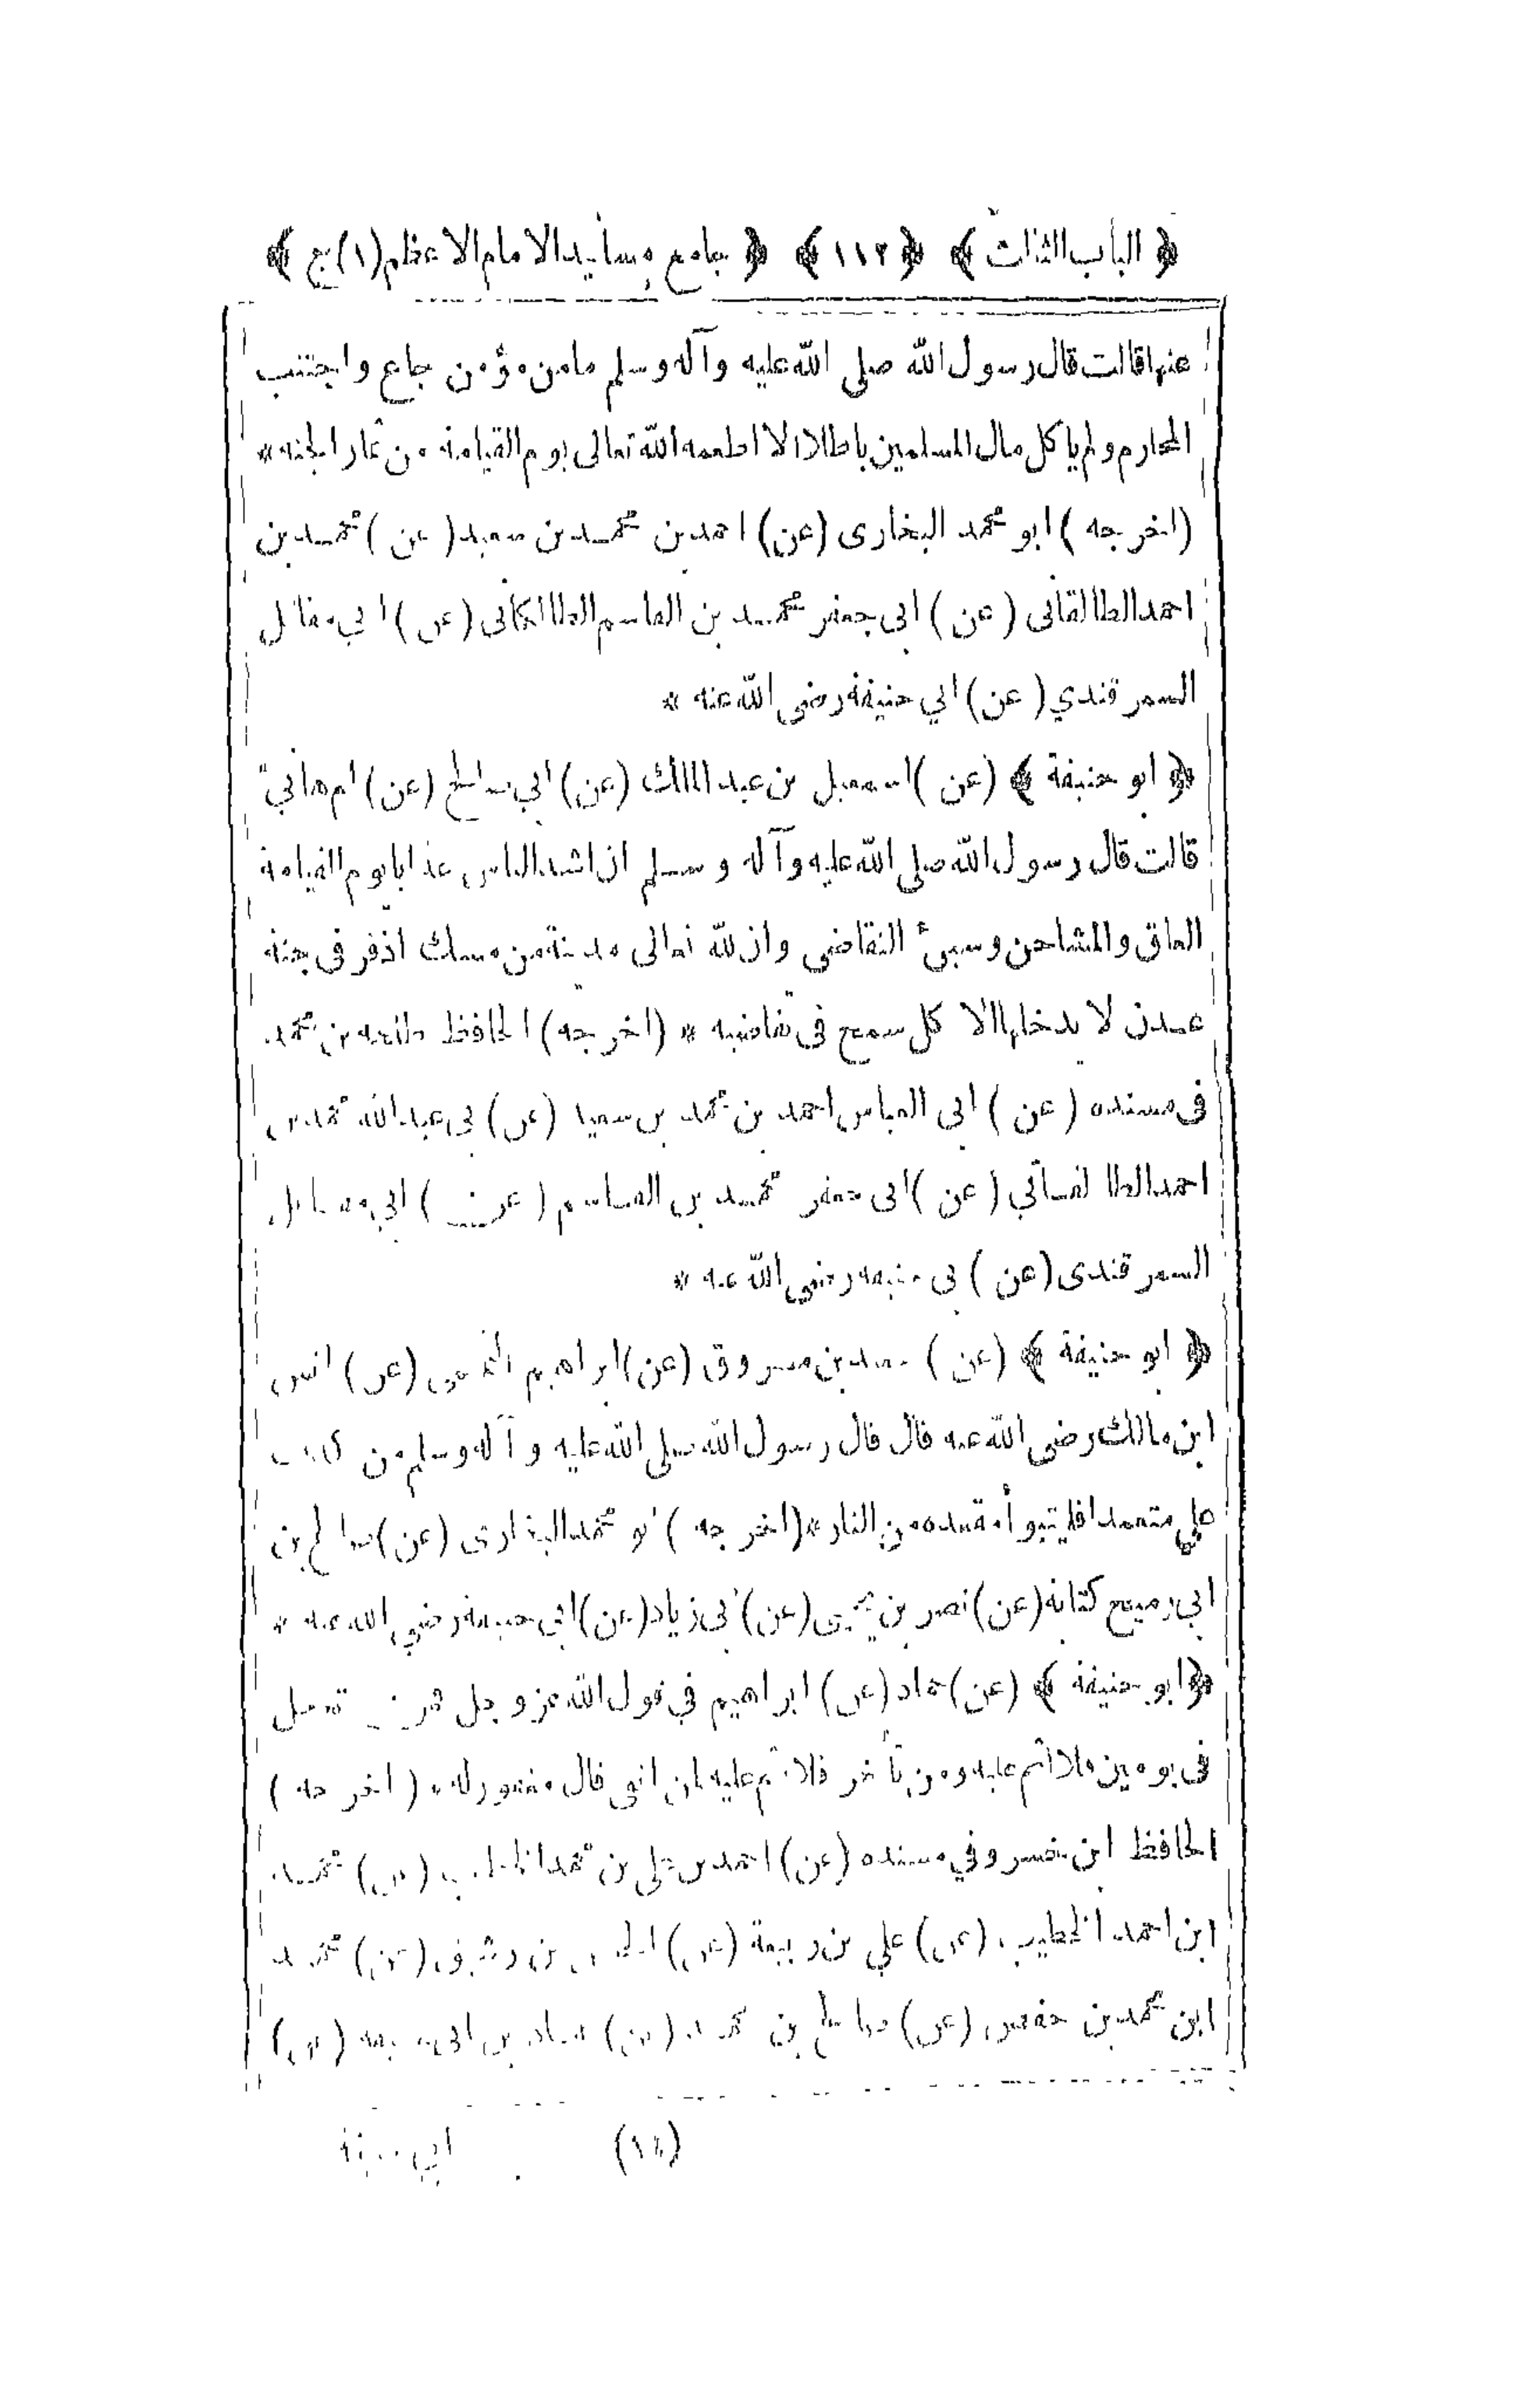 ﴿ الباب الثالث ﴾ ﴿ ١١٢ ﴾ ﴿ جامع مسانيد الامام الاعظم (١) ج ﴾
عنها قالت قال رسول الله صلى الله عليه وآله وسلم ما من مؤمن جاع واجتنب
المحارم ولم يأكل مال المسلمين باطلا الا اطعمه الله تعالى يوم القيامة من ثمار الجنه *
(اخرجه) ابو محمد البخارى (عن) احمد بن محمد بن سعيد (عن) محمد بن
احمد الطالقانى (عن) ابى جعفر محمد بن القاسم الطالكانى (عن) ابي مقاتل
السمرقندي (عن) ابي حنيفة رضى الله عنه *
﴿ ابو حنيفة ﴾ (عن) اسمعيل بن عبد الملك (عن) ابي صالح (عن) ام هانيء
قالت قال رسول الله صلى الله عليه وآله وسلم ان اشد الناس عذابا يوم القيامة
العاق والمشاحن وسيئ التقاضى وان لله تعالى مدينة من مسك اذفر فى جنة
عدن لا يدخلها الا كل سمح فى تقاضيه * (اخرجه) الحافظ طلحه بن محمد
فى مسنده (عن) ابى العباس احمد بن محمد بن سعيد (عن) ابى عبد الله محمد بن
احمد الطالقانى (عن) ابى جعفر محمد بن القاسم (عن) ابي مقاتل
السمرقندى (عن) ابى حنيفه رضى الله عنه *
﴿ ابو حنيفة ﴾ (عن) سعيد بن مسروق (عن) ابراهيم التيمى (عن) انس
ابن مالك رضى الله عنه قال قال رسول الله صلى الله عليه وآله وسلم من كذب
علي متعمدا فليتبوأ مقعده من النار * (اخرجه) ابو محمد البخارى (عن) صالح بن
ابي رميح كتابة (عن) نصر بن يحيى (عن) ابى زياد (عن) ابى حنيفه رضي الله عنه *
﴿ ابو حنيفة ﴾ (عن) حماد (عن) ابراهيم في قول الله عز وجل فمن تعجل
فى يومين فلا اثم عليه ومن تأخر فلا اثم عليه لمن اتقى قال مغفور له * (اخرجه)
الحافظ ابن خسرو في مسنده (عن) احمد بن علي بن محمد الخطيب (عن) محمد
ابن احمد الخطيب (عن) علي بن ربيعة (عن) الحسن بن رشيق (عن) محمد
ابن محمد بن حفص (عن) صالح بن محمد (عن) حماد بن ابى حنيفه (عن)
ابي حنيفة
(١٤)